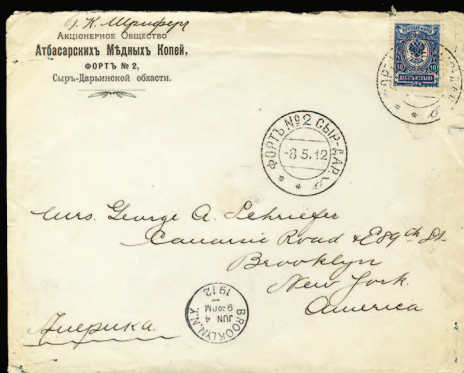 Г. К. Шриферъ
Акціонерное Общество
Атбасарскихъ Мѣдныхъ Копей,
ФОРТЪ № 2,
Сыръ-Дарьинской области.
10 10
ФОРТЪ № 2 СЫР-ДАР.
-8.5.12
Mrs. George A. Schriefer
Canarsie Road & E 89th St.
Brooklyn
New York.
America
Америка.
BROOKLYN, N.Y.
JUN 4
1912